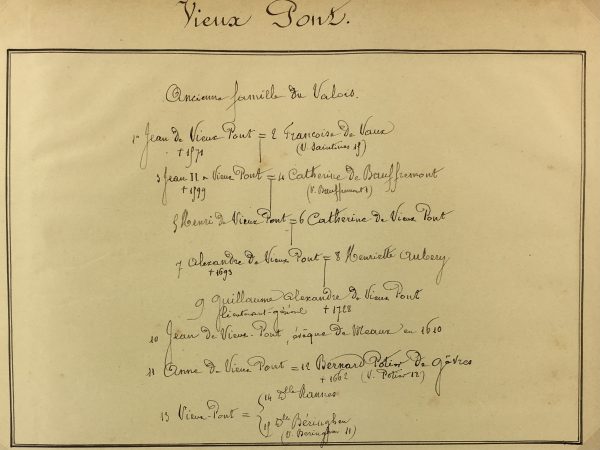 Vieux Pont.
Ancienne famille du Valois.
1 Jean de Vieux Pont = 2 Françoise de Vaux
+ 1571 (V. Saintines 15)
3 Jean II de Vieux Pont = 4 Catherine de Bauffremont
+ 1599 (V. Bauffremont 1)
5 Henri de Vieux Pont = 6 Catherine de Vieux Pont
7 Alexandre de Vieux Pont = 8 Henriette Aubery
+ 1693
9 Guillaume Alexandre de Vieux Pont
lieutenant-général + 1728
10 Jean de Vieux-Pont, évêque de Meaux en 1610
11 Anne de Vieux Pont = 12 Bernard Potier de Gêvres
+ 1662 (V. Potier 12)
13 Vieux-Pont = 14 Dlle Rannes
15 Dlle Béringhen
(V. Beringhen 11)